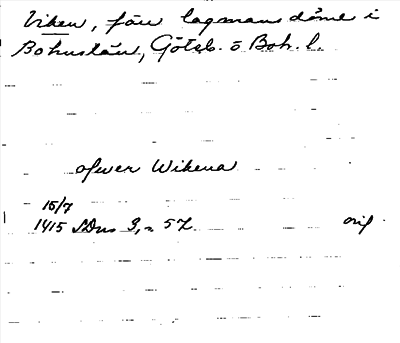 Viken, förr lagmansdöme i
Bohuslän, Göteb. o Boh. l.
ofwer Wikena
15/7
1415 SDns 3, 57 orig